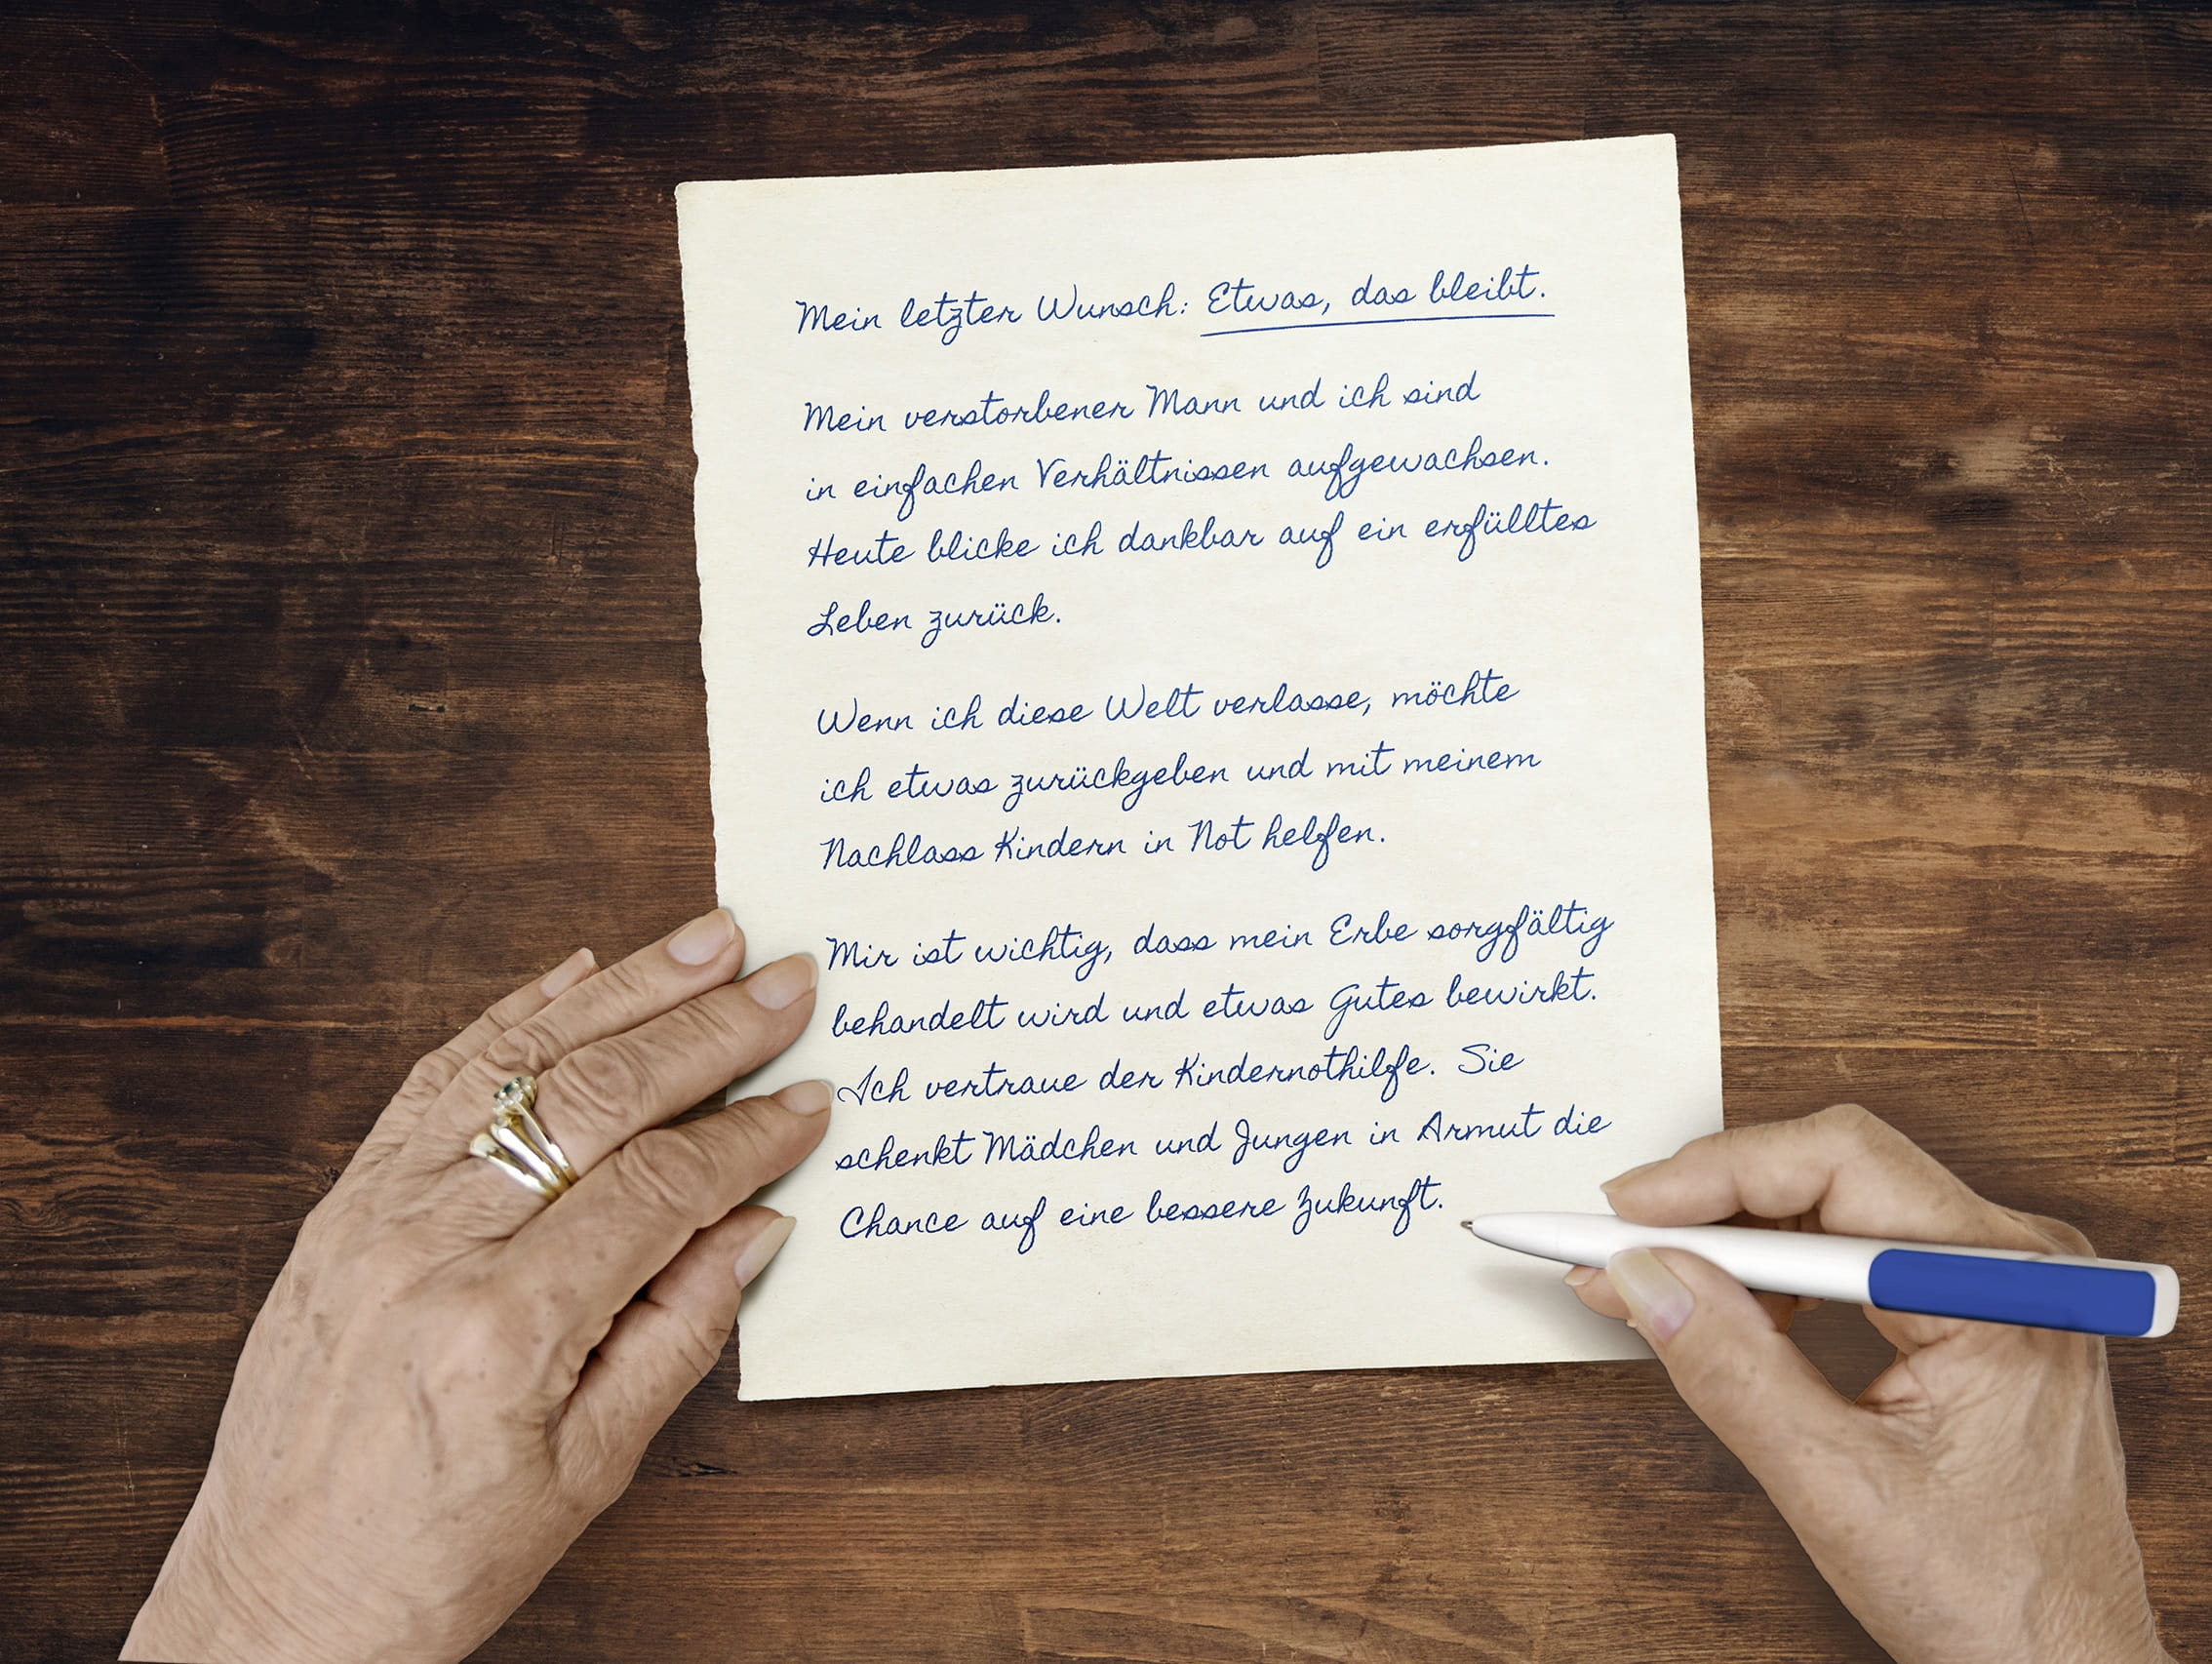 Mein letzter Wunsch: Etwas, das bleibt.
Mein verstorbener Mann und ich sind
in einfachen Verhältnissen aufgewachsen.
Heute blicke ich dankbar auf ein erfülltes
Leben zurück.
Wenn ich diese Welt verlasse, möchte
ich etwas zurückgeben und mit meinem
Nachlass Kindern in Not helfen.
Mir ist wichtig, dass mein Erbe sorgfältig
behandelt wird und etwas Gutes bewirkt.
Ich vertraue der Kindernothilfe. Sie
schenkt Mädchen und Jungen in Armut die
Chance auf eine bessere Zukunft.